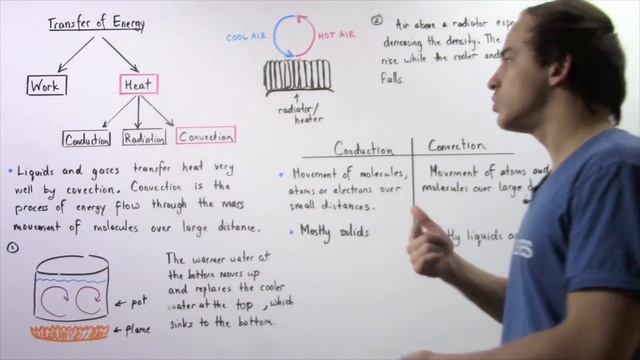 Transfer of Energy
Work
Heat
Conduction
Radiation
Convection
• Liquids and gases transfer heat very
well by covection. Convection is the
process of energy flow through the mass
movement of molecules over large distance.
1
pot
flame
The warmer water at
the bottom moves up
and replaces the cooler
water at the top, which
sinks to the bottom.
COOL AIR
HOT AIR
radiator/
heater
2
Air above a radiator
decreasing the density. The
rise while the cooler and
falls.
Conduction
Convection
• Movement of molecules,
atoms or electrons over
small distances.
Movement of atoms and
molecules over large
• Mostly solids
liquids